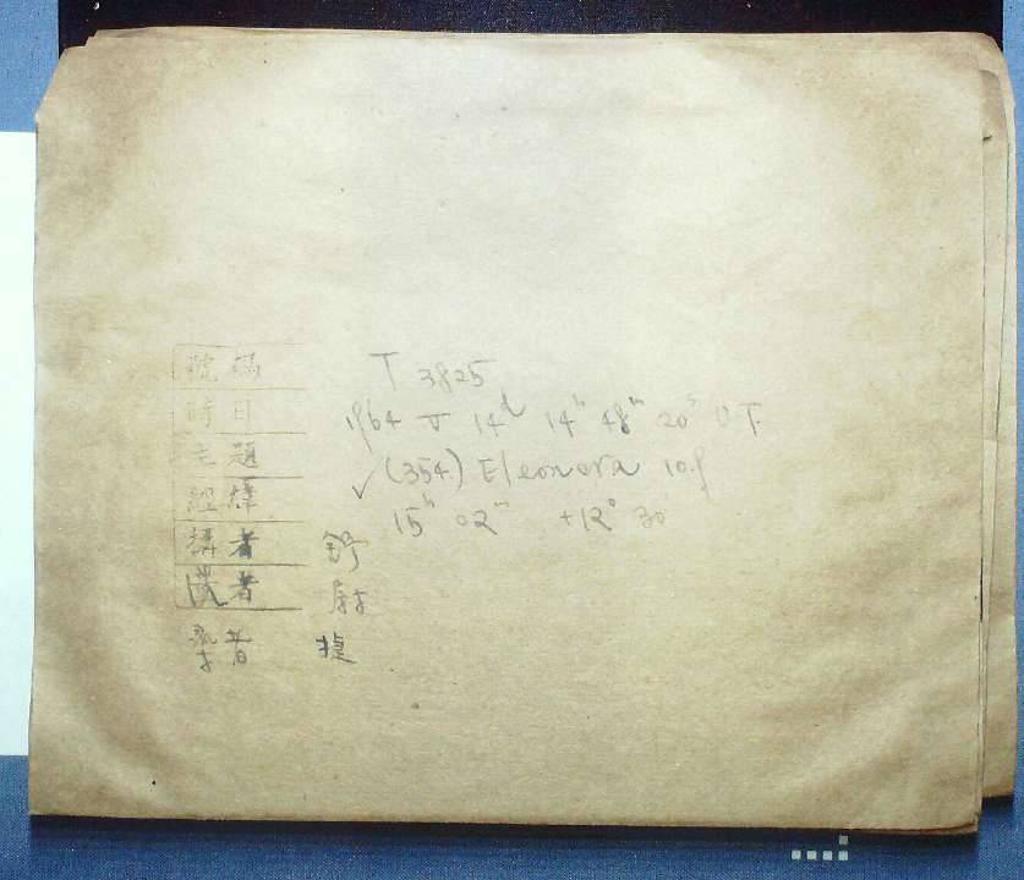 號碼 T 3825
時日 1964 V 14ᵈ 14ʰ 48ᵐ 20ˢ U.T.
主題 ✓ (354) Eleonora 10.9
經緯 15ʰ 02ᵐ +12° 30'
攝者 舒
洗者
者 捷